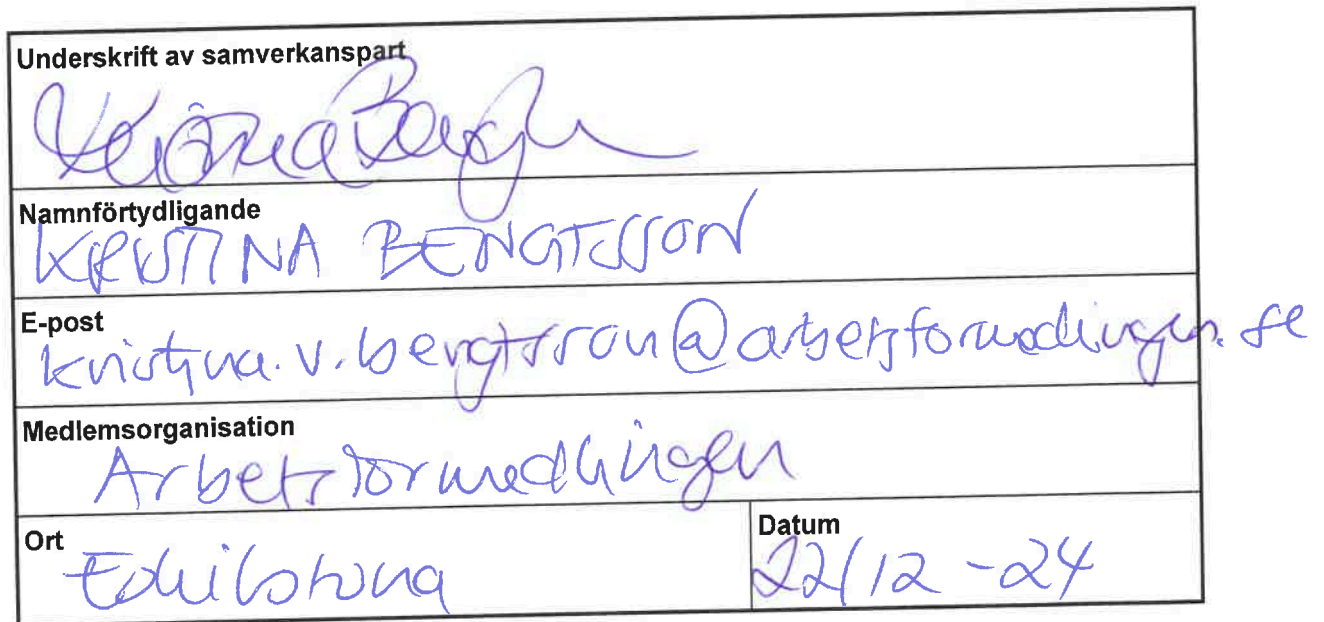 Underskrift av samverkanspart
Namnförtydligande
KRISTINA BENGTSSON
E-post
kristina.v.bengtsson@arbetsformedlingen.se
Medlemsorganisation
Arbetsformedlingen
Ort
Eskilstuna
Datum
22/12 -24